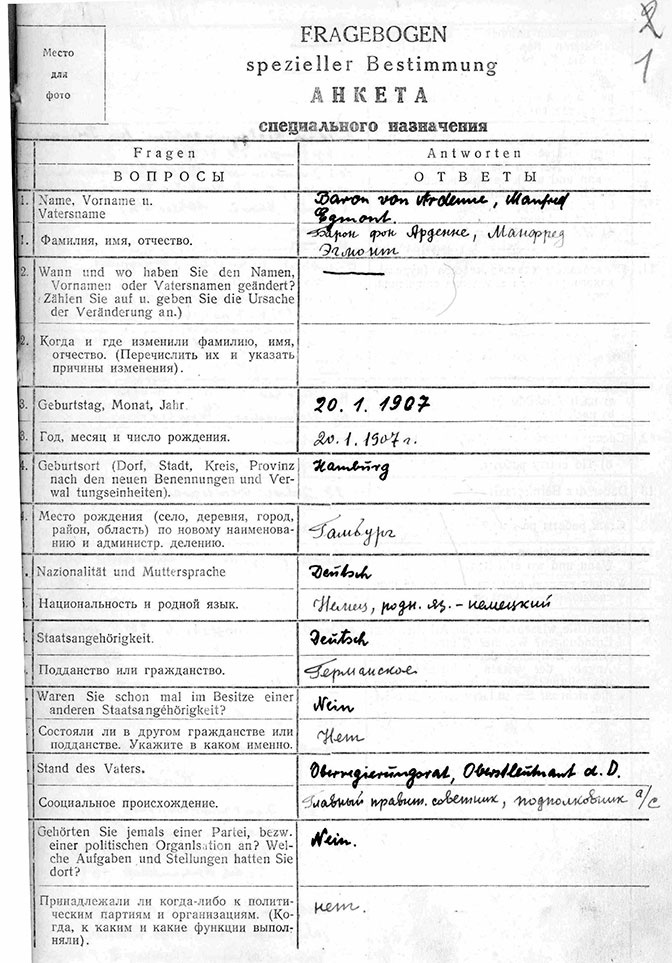 2
1
Место
для
фото
FRAGEBOGEN
spezieller Bestimmung
АНКЕТА
специального назначения
Fragen
ВОПРОСЫ
Antworten
ОТВЕТЫ
1. Name, Vorname u.
Vatersname
Baron von Ardenne, Manfred
Egmont.
1. Фамилия, имя, отчество.
Барон фон Арденне, Манфред
Эгмонт
2. Wann und wo haben Sie den Namen,
Vornamen oder Vatersnamen geändert?
(Zählen Sie auf u. geben Sie die Ursache
der Veränderung an.)
2. Когда и где изменили фамилию, имя,
отчество. (Перечислить их и указать
причины изменения).
3. Geburtstag, Monat, Jahr.
20. 1. 1907
3. Год, месяц и число рождения.
20.1.1907 г.
4. Geburtsort (Dorf, Stadt, Kreis, Provinz
nach den neuen Benennungen und Ver-
wal tungseinheiten).
Hamburg
Место рождения (село, деревня, город,
район, область) по новому наименова-
нию и администр. делению.
Гамбург
Nazionalität und Muttersprache
Deutsch
Национальность и родной язык.
Немец, родн. яз. - немецкий
Staatsangehörigkeit.
Deutsch
Подданство или гражданство.
Германское
Waren Sie schon mal im Besitze einer
anderen Staatsangéhörigkeit?
Nein
Состояли ли в другом гражданстве или
подданстве. Укажите в каком именно.
Нет
Stand des Vaters.
Oberregierungsrat, Oberstleutnant a. D.
Сооциальное происхождение.
Главный правит. советник, подполковник а/с
Gehörten Sie jemals einer Partei, bezw.
einer politischen Organlsation an? Wel-
che Aufgaben und Stellungen hatten Sie
dort?
Nein.
Принадлежали ли когда-либо к полити-
ческим партиям и организациям. (Ко-
гда, к каким и какие функции выпол-
няли).
нет.